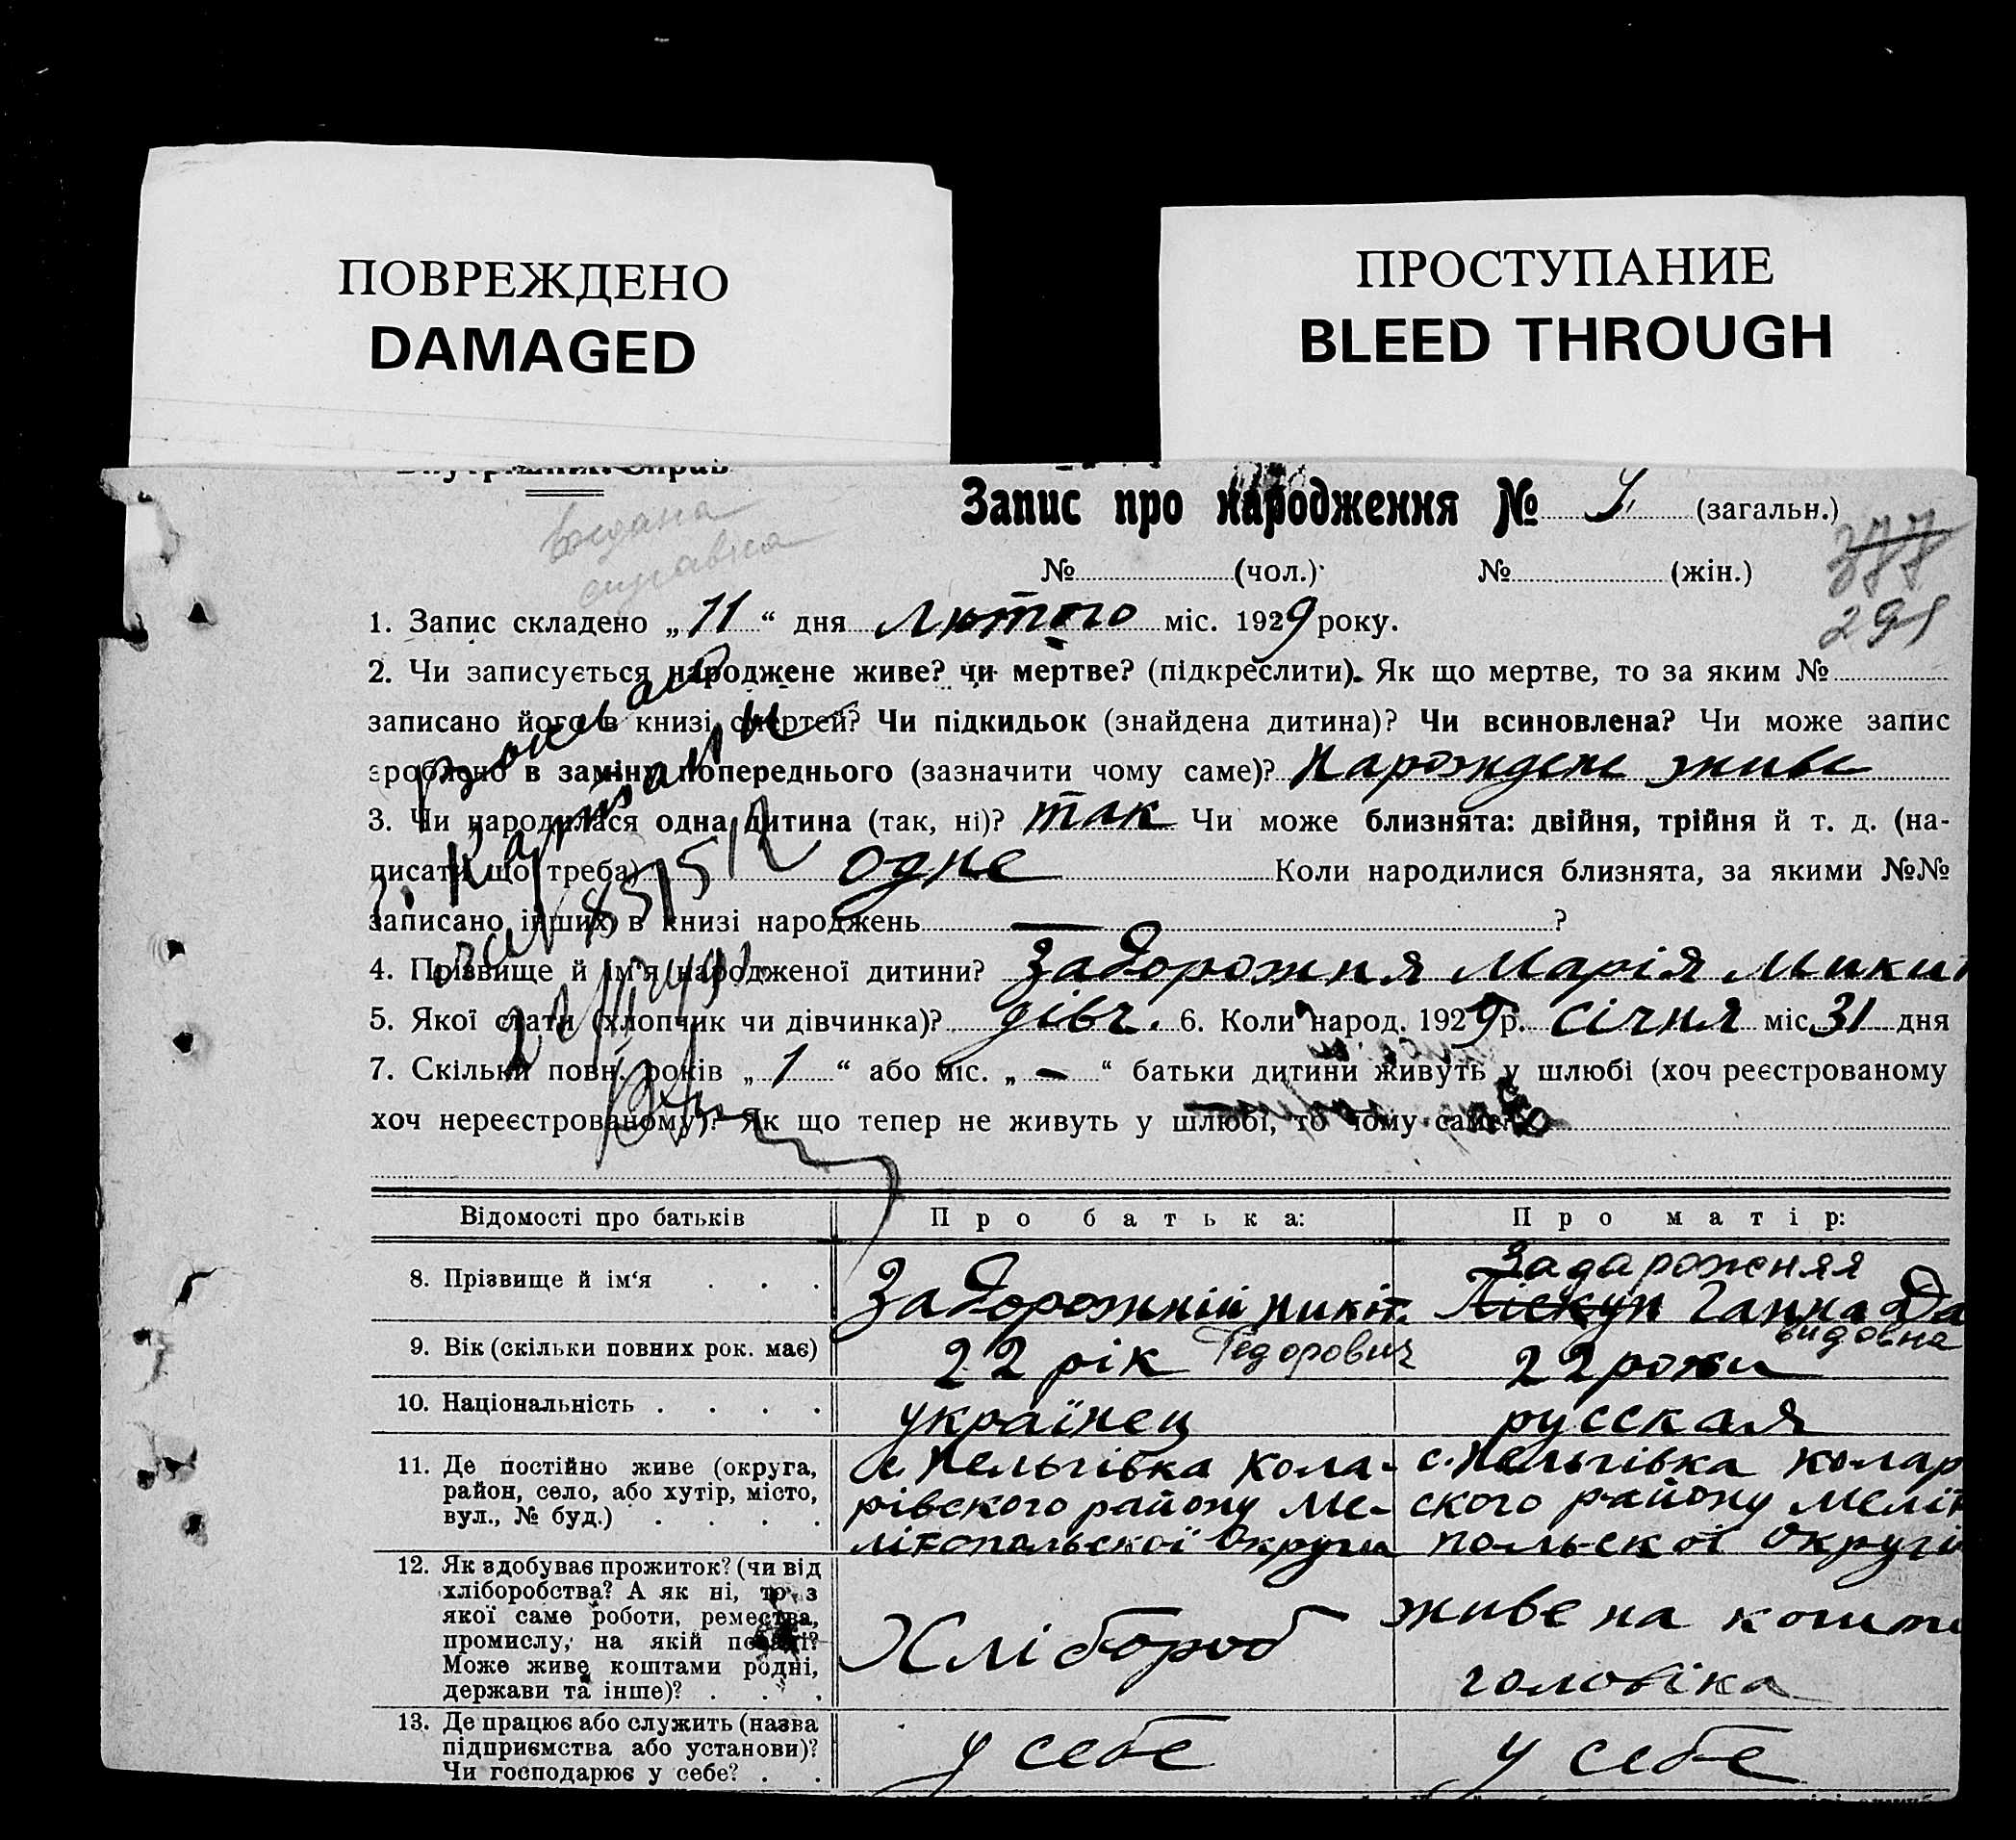 ПОВРЕЖДЕНО
DAMAGED
ПРОСТУПАНИЕ
BLEED THROUGH
Внутрішніх Справ
Запис про народження № (загальн.)
Видана
справка
377
291
№ (чол.) № (жін.)
1. Запис складено „11“ дня Лютого міс. 1929 року.
2. Чи записується народжене живе? чи мертве? (підкреслити). Як що мертве, то за яким №
записано його в книзі смертей? Чи підкидьок (знайдена дитина)? Чи всиновлена? Чи може запис
зроблено в заміну попереднього (зазначити чому саме)? Нарождене живе
3. Чи народилася одна дитина (так, ні)? так Чи може близнята: двійня, трійня й т. д. (на-
писати що треба) одне Коли народилися близнята, за якими №№
записано інших в книзі народжень — ?
4. Прізвище й ім'я народженої дитини? Задорожня Марія Микит
5. Якої стати (хлопчик чи дівчинка)? дівч. 6. Коли народ. 1929 р. січня міс. 31 дня
7. Скільки повн. років „1“ або міс. „—“ батьки дитини живуть у шлюбі (хоч реєстрованому
хоч нереєстрованому)? Як що тепер не живуть у шлюбі, то чому саме?
Відомості про батьків Про батька: Про матір:
8. Прізвище й ім'я . . . Задорожній Микит. Федорович
Задарожняя Піскун Ганна Давидовна
9. Вік (скільки повних рок. має) 22 рік 22 роки
10. Національність . . . . українец русская
11. Де постійно живе (округа,
район, село, або хутір, місто,
вул., № буд.) . . . .
с. Нельгівка Кола-
рівского району Ме-
літопальскої Округи
с. Нельгівка Колар
ского району Меліт
польскої Округи
12. Як здобуває прожиток? (чи від
хліборобства? А як ні, то з
якої саме роботи, ремества,
промислу, на якій посаді?
Може живе коштами родні,
держави та інше)? . . .
Хлібороб
живе на кошти
головіка
13. Де працює або служить (назва
підприємства або установи)?
Чи господарює у себе? . .
у себе
у себе